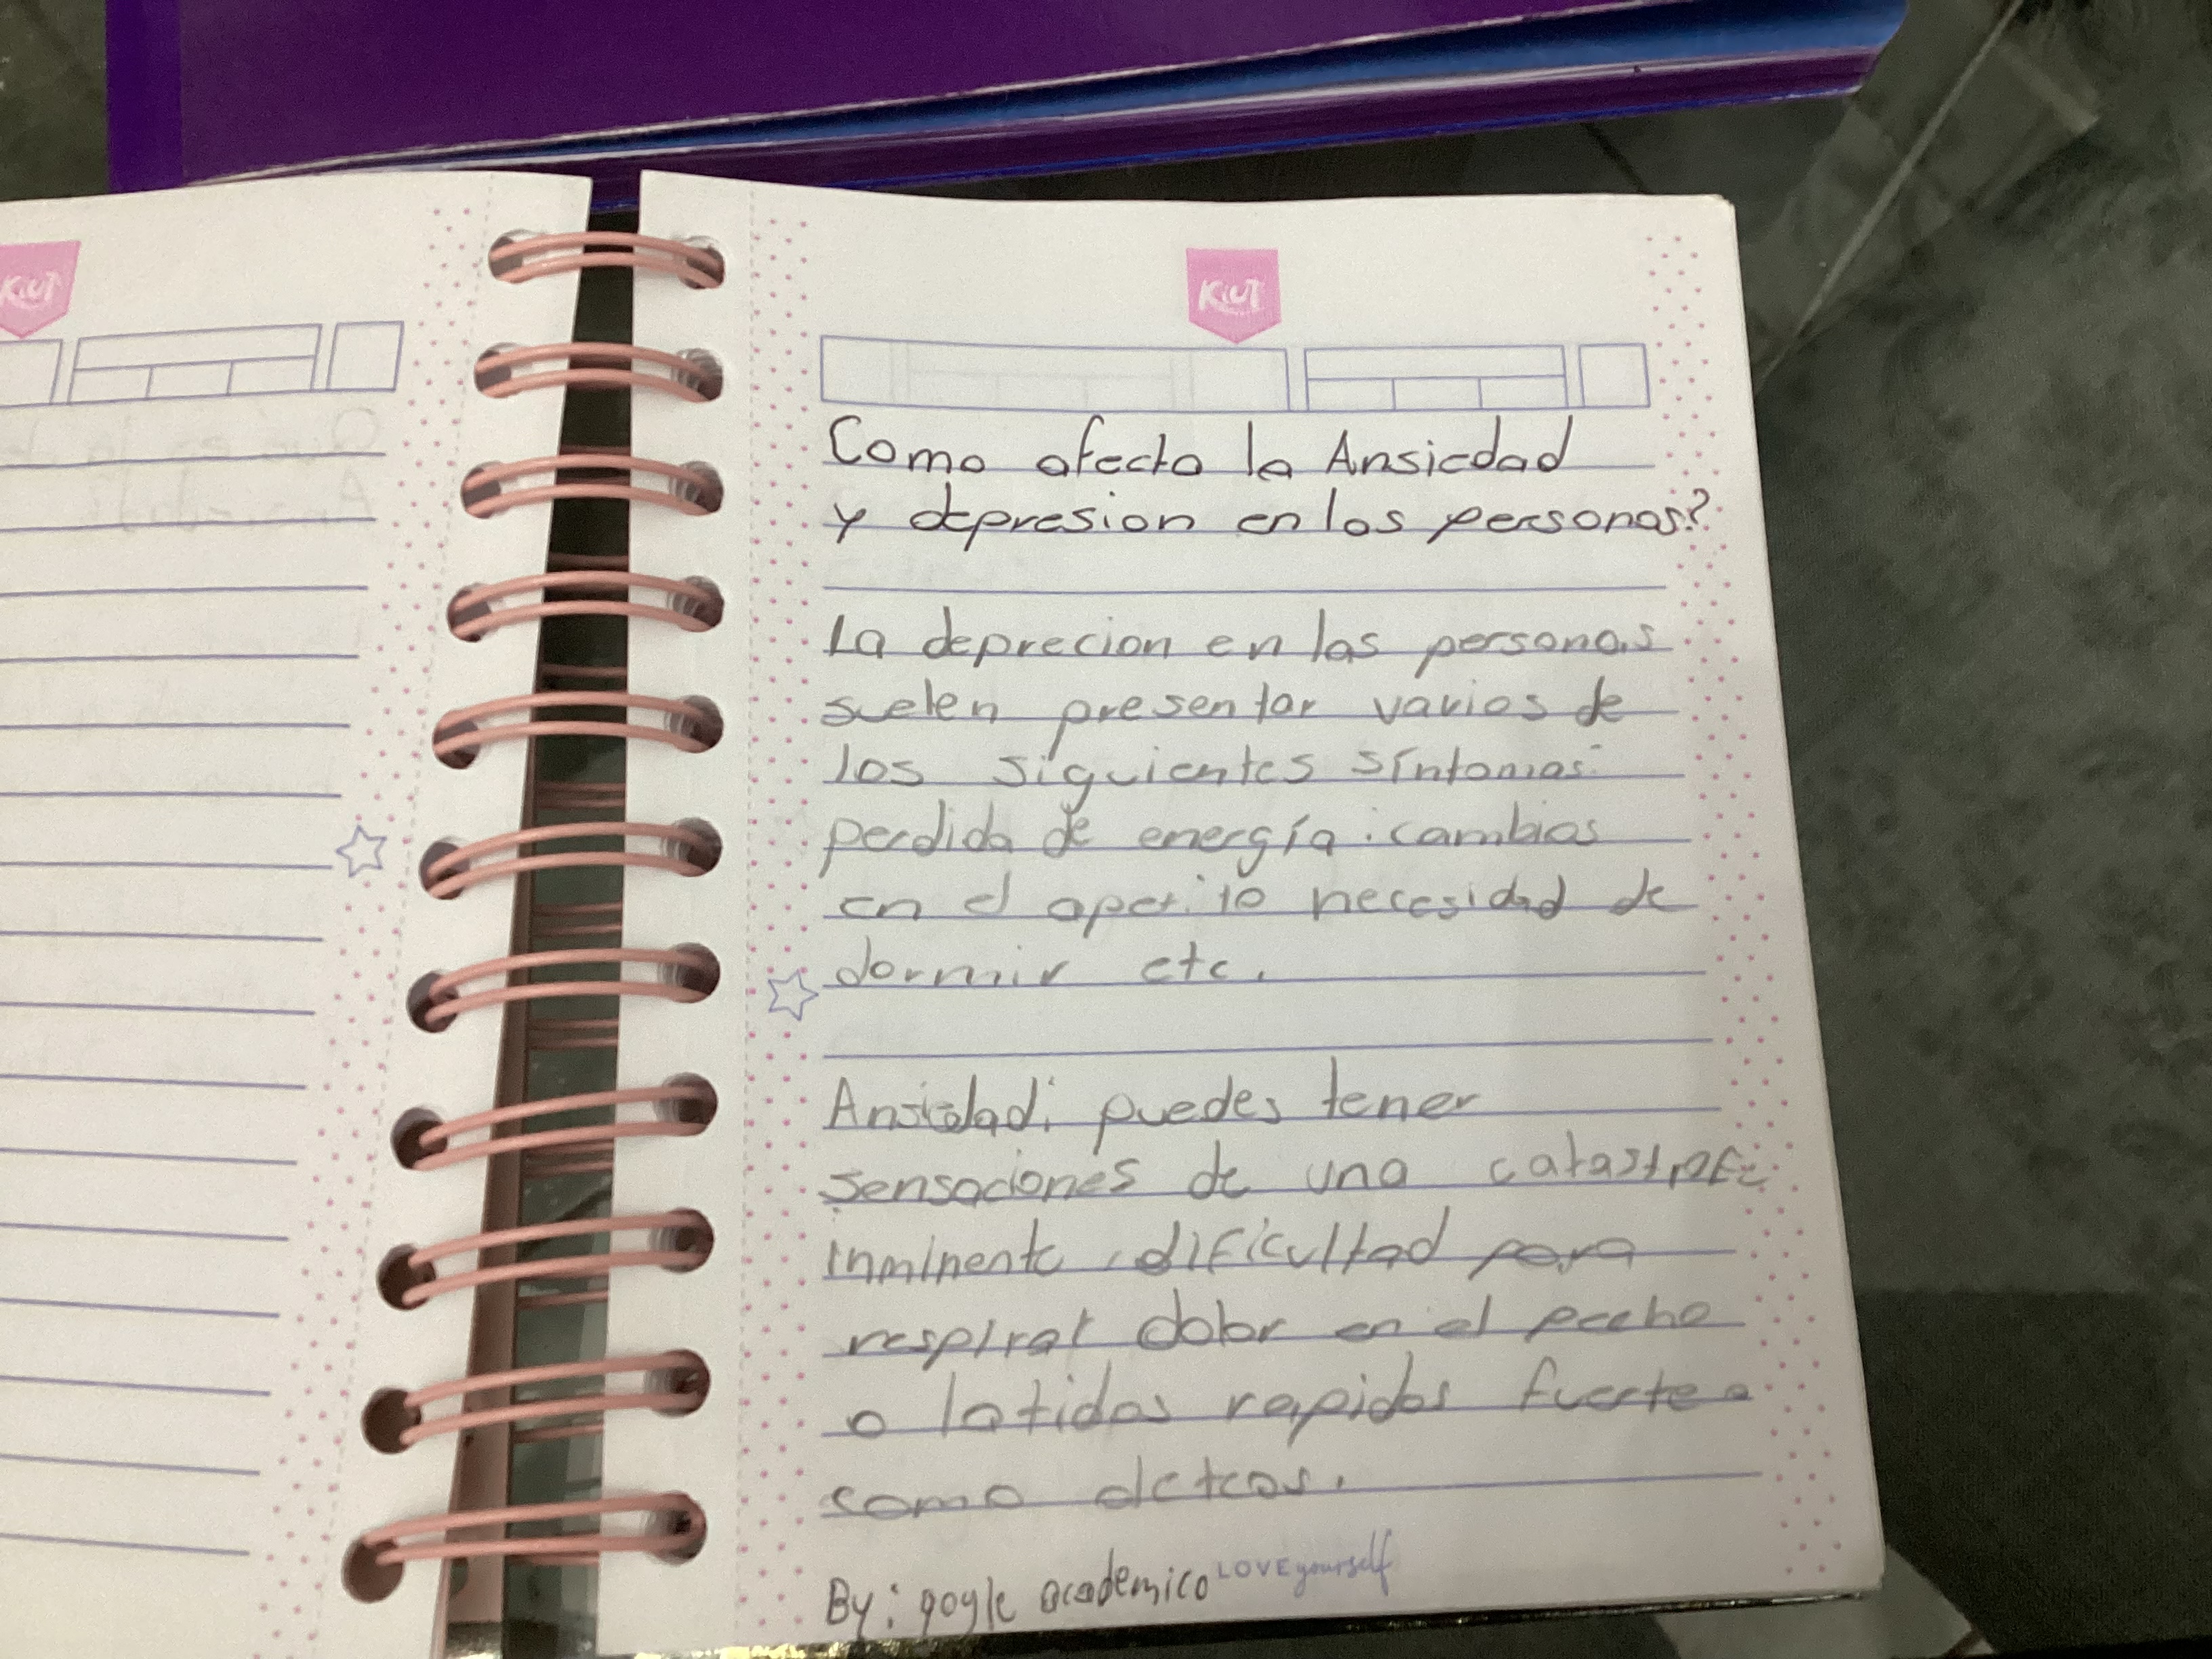 Kiut
Kiut
Como afecta la Ansiedad
y depresion en las personas?
La deprecion en las personas
suelen presentar varios de
los siguientes síntomas:
perdida de energía. cambios
en el apetito necesidad de
dormir etc.
Ansiedad: puedes tener
sensaciones de una catastrofe
inminente, dificultad para
respirar dolor en el pecho
o latidos rapidos fuertes
como
By: google academico
LOVE yourself